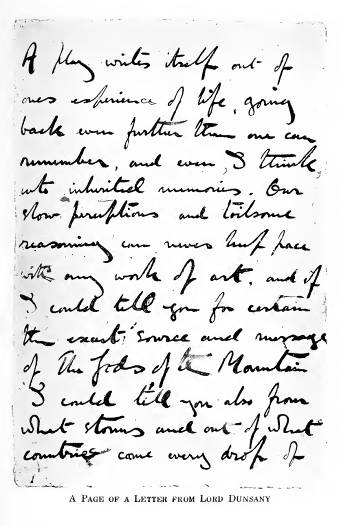 A play writes itself out of
ones experience of life, going
back even further than one can
remember, and even, I think,
into inherited memories. Our
slow perceptions and toilsome
reasoning can never keep pace
with any work of art, and if
I could tell you for certain
the exact source and message
of The Gods of the Mountain
I could tell you also from
what storms and out of what
countries came every drop of
A PAGE OF A LETTER FROM LORD DUNSANY